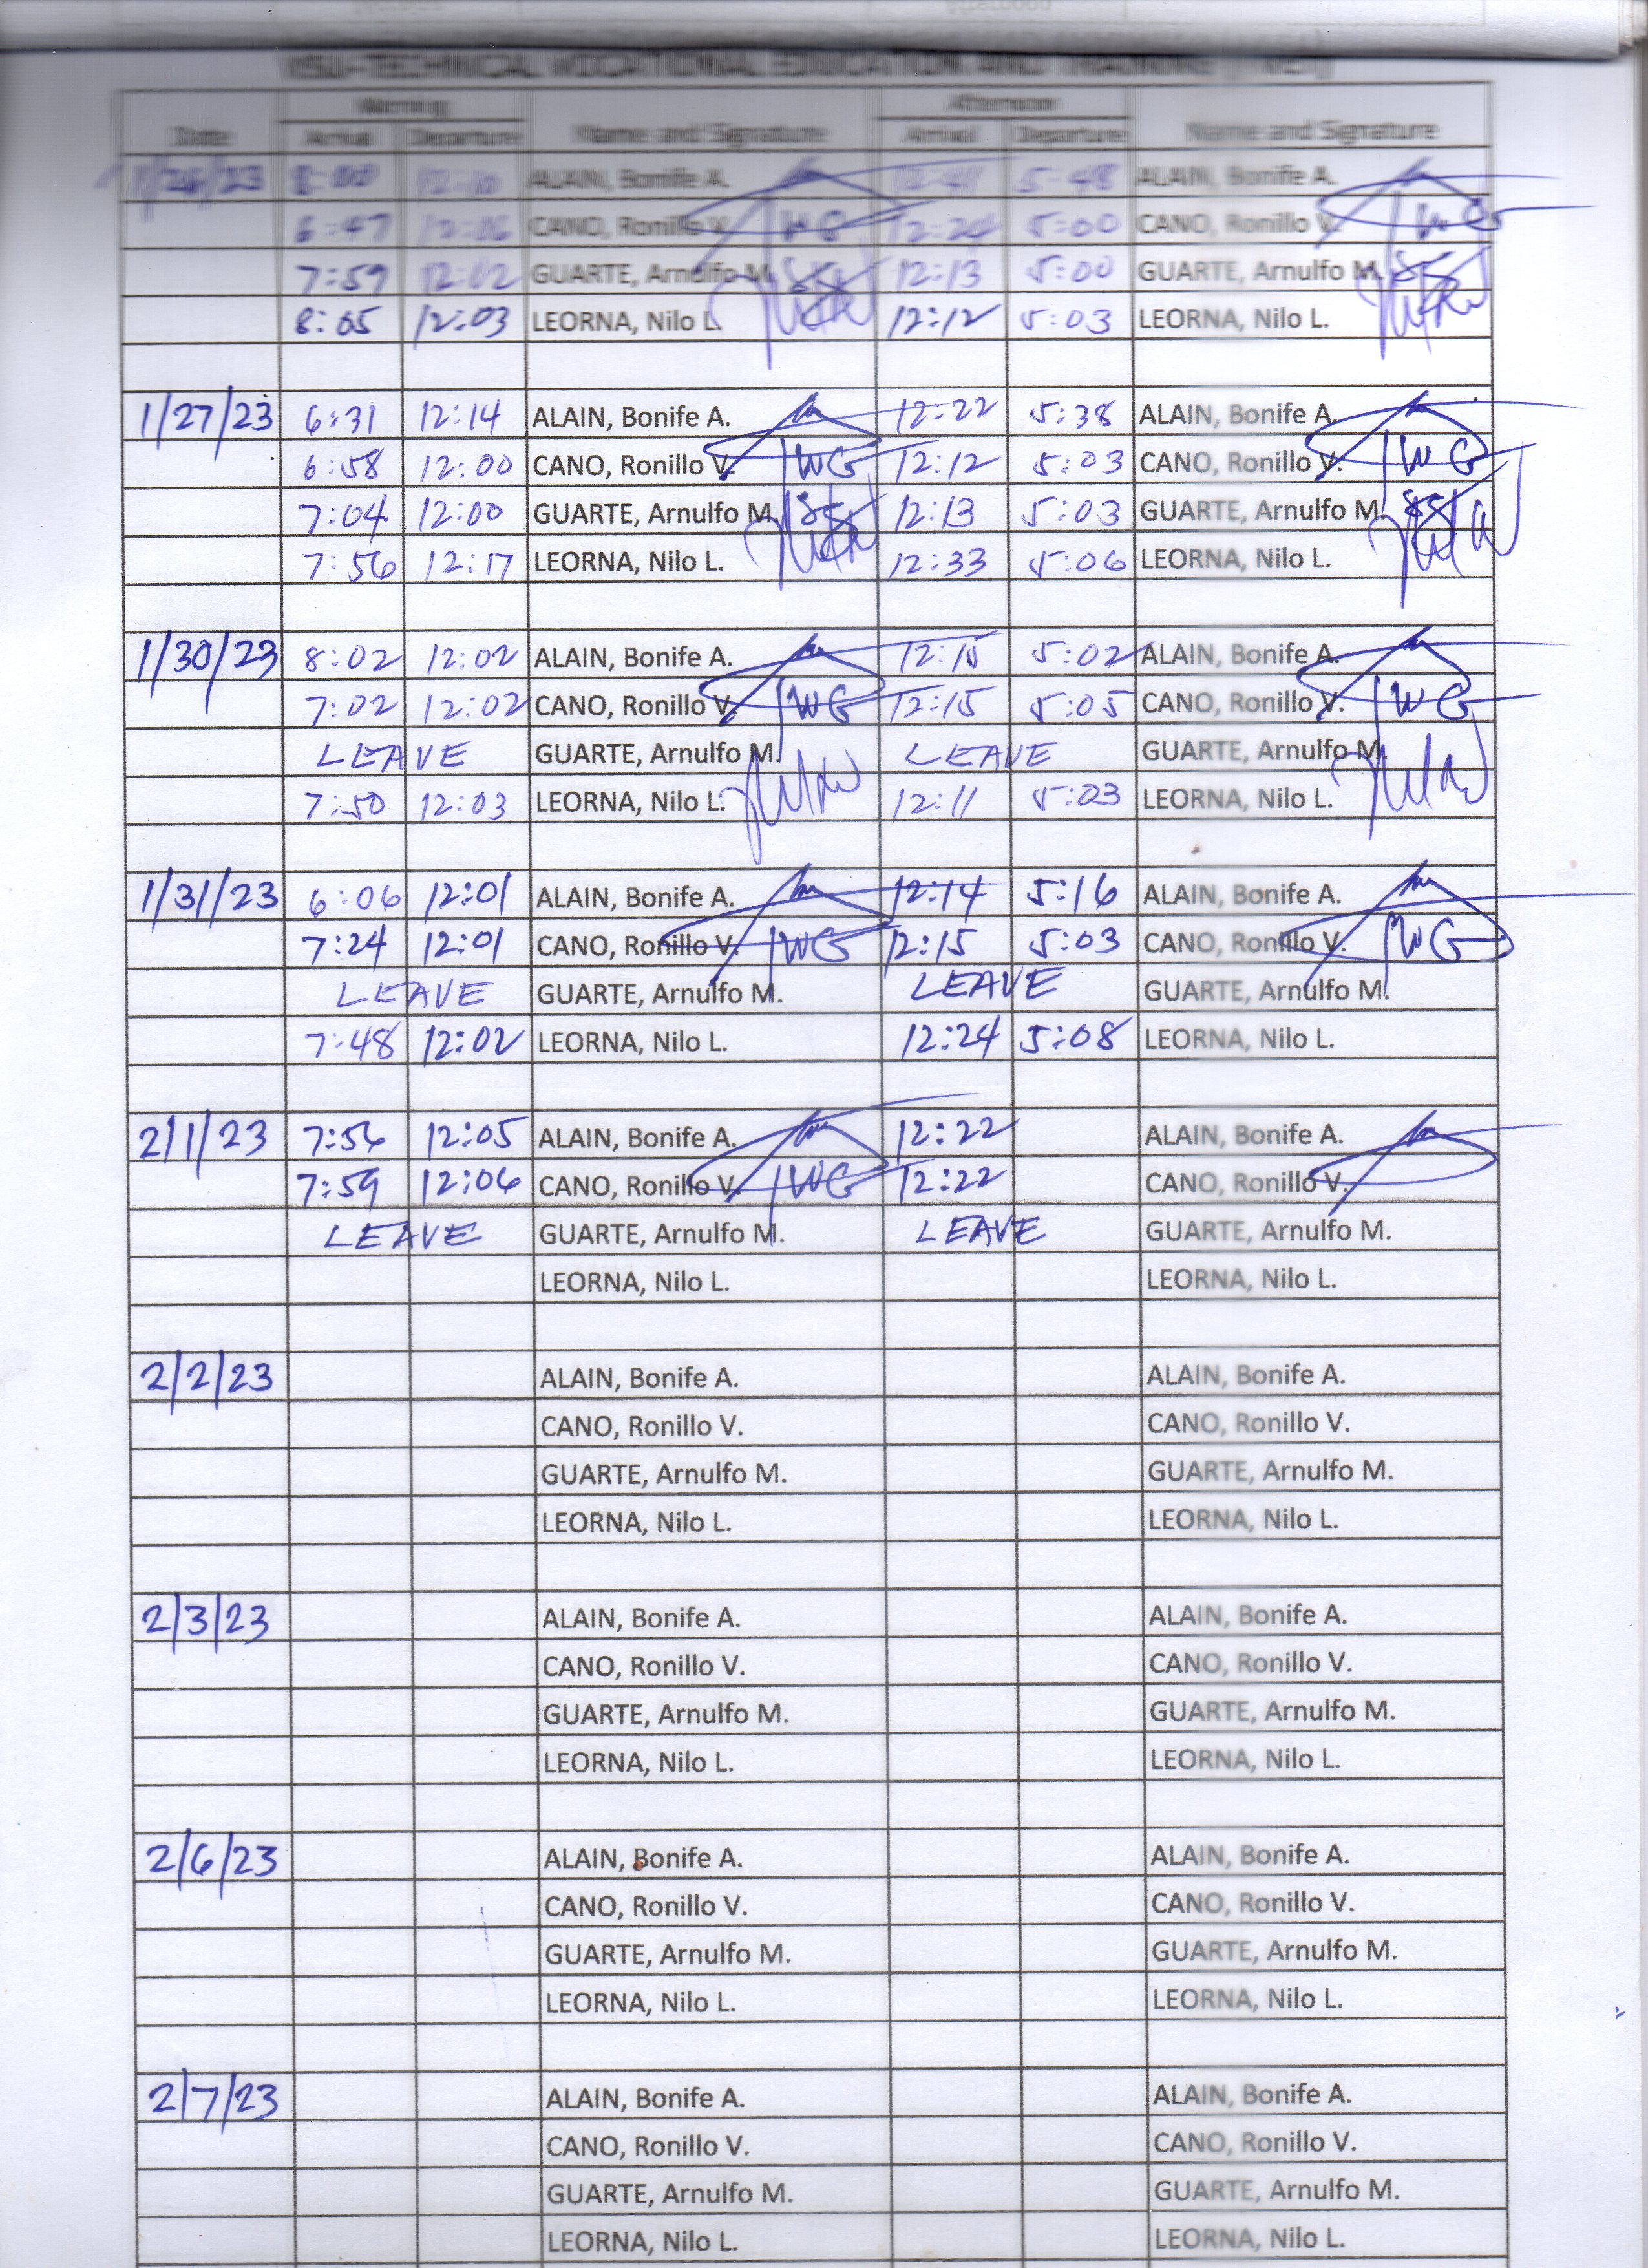 TECHNICAL VOCATIONAL EDUCATION AND TRAINING
Morning Afternoon
Date Arrival Departure Name and Signature Arrival Departure Name and Signature
1/26/23 8:00 ALAIN, Bonife A. 12:41 5:48 ALAIN, Bonife A.
6:47 12:06 CANO, Ronillo V. 12:24 5:00 CANO, Ronillo V.
7:59 12:02 GUARTE, Arnulfo M. 12:13 5:00 GUARTE, Arnulfo M.
8:05 12:03 LEORNA, Nilo L. 12:12 5:03 LEORNA, Nilo L.
1/27/23 6:31 12:14 ALAIN, Bonife A. 12:22 5:38 ALAIN, Bonife A.
6:58 12:00 CANO, Ronillo V. 12:12 5:03 CANO, Ronillo V.
7:04 12:00 GUARTE, Arnulfo M. 12:13 5:03 GUARTE, Arnulfo M.
7:56 12:17 LEORNA, Nilo L. 12:33 5:06 LEORNA, Nilo L.
1/30/23 8:02 12:02 ALAIN, Bonife A. 12:15 5:02 ALAIN, Bonife A.
7:02 12:02 CANO, Ronillo V. 12:15 5:05 CANO, Ronillo V.
LEAVE GUARTE, Arnulfo M. LEAVE GUARTE, Arnulfo M.
7:50 12:03 LEORNA, Nilo L. 12:11 5:03 LEORNA, Nilo L.
1/31/23 6:06 12:01 ALAIN, Bonife A. 12:14 5:16 ALAIN, Bonife A.
7:24 12:01 CANO, Ronillo V. 12:15 5:03 CANO, Ronillo V.
LEAVE GUARTE, Arnulfo M. LEAVE GUARTE, Arnulfo M.
7:48 12:02 LEORNA, Nilo L. 12:24 5:08 LEORNA, Nilo L.
2/1/23 7:56 12:05 ALAIN, Bonife A. 12:22 ALAIN, Bonife A.
7:59 12:06 CANO, Ronillo V. 12:22 CANO, Ronillo V.
LEAVE GUARTE, Arnulfo M. LEAVE GUARTE, Arnulfo M.
LEORNA, Nilo L. LEORNA, Nilo L.
2/2/23 ALAIN, Bonife A. ALAIN, Bonife A.
CANO, Ronillo V. CANO, Ronillo V.
GUARTE, Arnulfo M. GUARTE, Arnulfo M.
LEORNA, Nilo L. LEORNA, Nilo L.
2/3/23 ALAIN, Bonife A. ALAIN, Bonife A.
CANO, Ronillo V. CANO, Ronillo V.
GUARTE, Arnulfo M. GUARTE, Arnulfo M.
LEORNA, Nilo L. LEORNA, Nilo L.
2/6/23 ALAIN, Bonife A. ALAIN, Bonife A.
CANO, Ronillo V. CANO, Ronillo V.
GUARTE, Arnulfo M. GUARTE, Arnulfo M.
LEORNA, Nilo L. LEORNA, Nilo L.
2/7/23 ALAIN, Bonife A. ALAIN, Bonife A.
CANO, Ronillo V. CANO, Ronillo V.
GUARTE, Arnulfo M. GUARTE, Arnulfo M.
LEORNA, Nilo L. LEORNA, Nilo L.